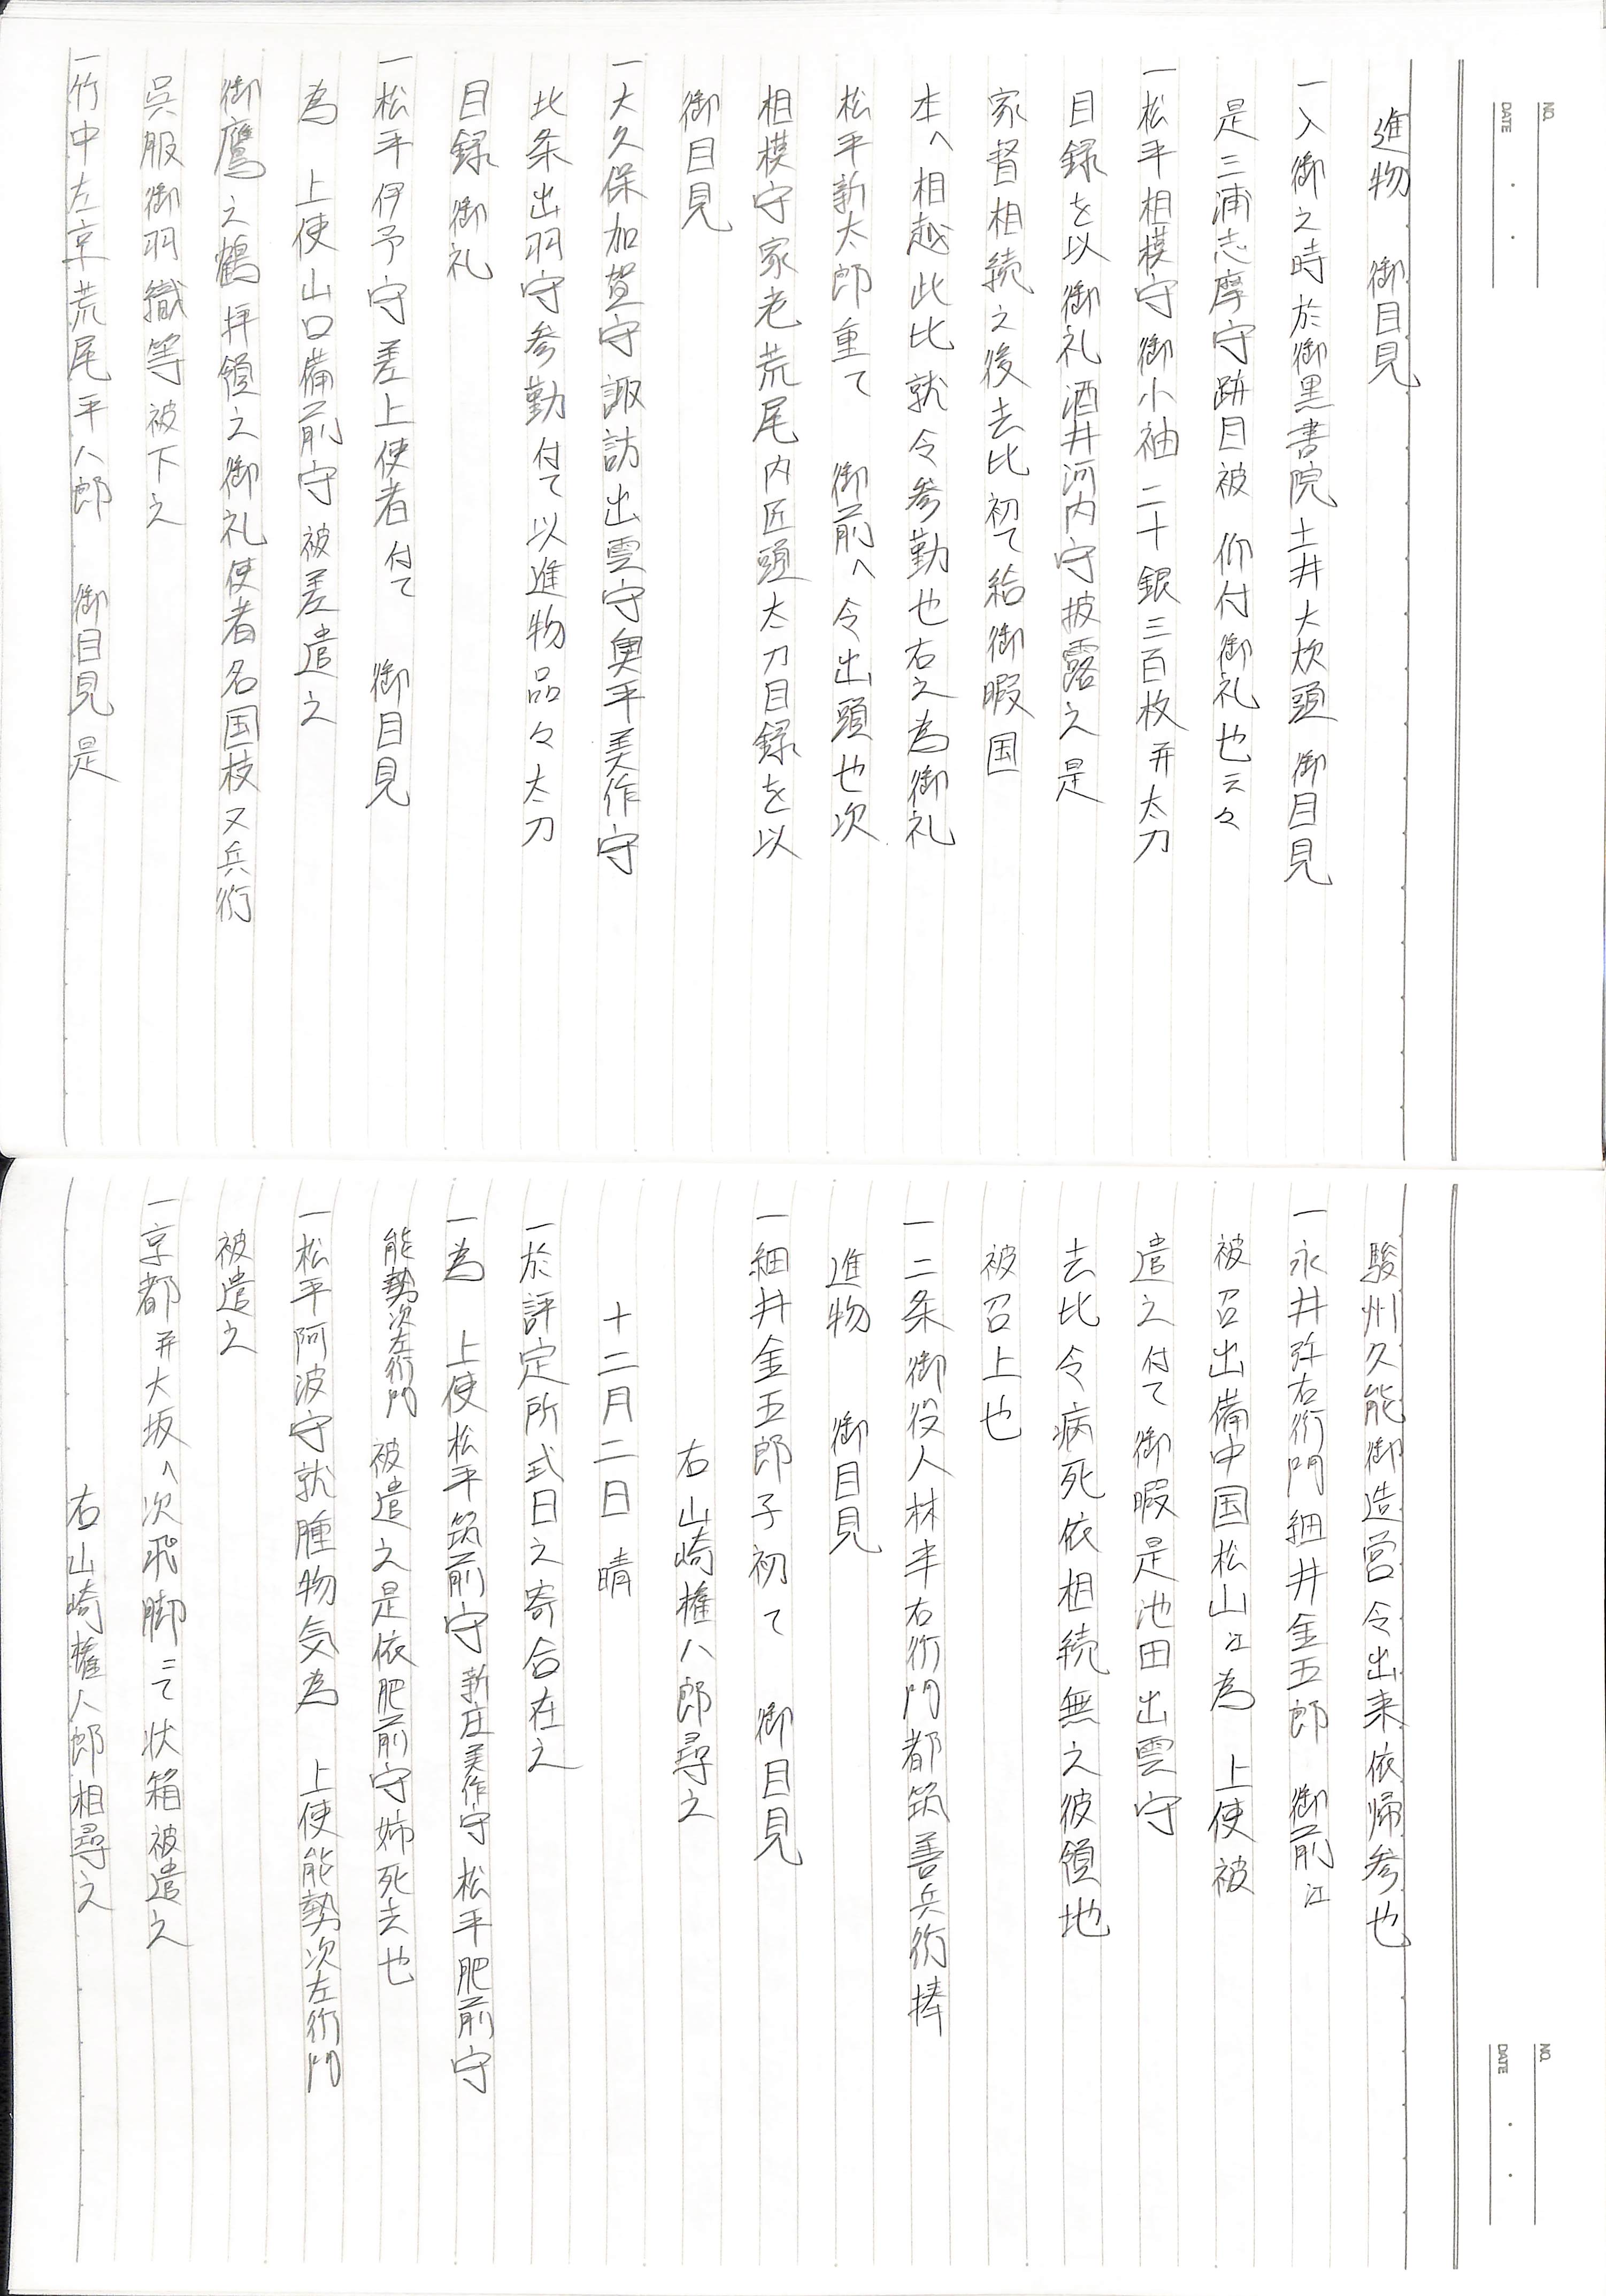 進物　御目見
一入御之時於御黒書院土井大炊頭　御目見
是三浦志摩守跡目被　仰付御礼也云々
一松平相模守御小袖二十銀三百枚并太刀
目録を以御礼酒井河内守披露之是
家督相続之後去比初て給御暇国
本へ相越此比就令参勤也右之為御礼
松平新太郎重て　御前へ令出頭也次
相模守家老荒尾内匠頭太刀目録を以
御目見
一大久保加賀守諏訪出雲守奥平美作守
北条出羽守参勤付て以進物品々太刀
目録御礼
一松平伊予守差上使者付て　御目見
為　上使山口備前守被差遣之
御鷹之鶴拝領之御礼使者名国枝又兵衛
呉服御羽織等被下之
一竹中左京荒尾平八郎　御目見是
駿州久能御造営令出来依帰参也
一永井弥右衛門細井金五郎　御前江
被召出備中国松山江為　上使被
遣之付て御暇是池田出雲守
去比令病死依相続無之彼領地
被召上也
一二条御役人林半右衛門都筑善兵衛捧
進物　御目見
一細井金五郎子初て　御目見
右山崎権八郎尋之
十二月二日　晴
一於評定所式日之寄合在之
一為　上使松平筑前守新庄美作守松平肥前守
能勢次左衛門被遣之是依肥前守姉死去也
一松平阿波守就腫物気為　上使能勢次左衛門
被遣之
一京都并大坂へ次飛脚ニて状箱被遣之
右山崎権八郎相尋之
NO.
DATE
NO.
DATE